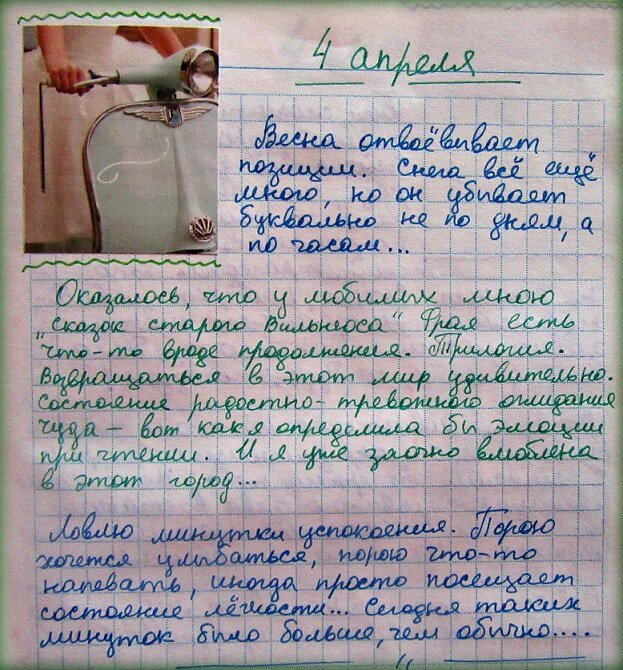 4 апреля
Весна отвоёвывает
позиции. Снега всё ещё
много, но он убывает
буквально не по дням, а
по часам...
Оказалось, что у любимых мною
„Сказок старого Вильнюса“ Фрая есть
что-то вроде продолжения. Трилогия.
Возвращаться в этот мир удивительно.
Состояние радостно-тревожного ожидания
чуда – вот как я определила бы эмоции
при чтении. И я уже заочно влюблена
в этот город...
Ловлю минутки успокоения. Порою
хочется улыбаться, порою что-то
напевать, иногда просто посещает
состояние лёгкости... Сегодня таких
минуток было больше, чем обычно....